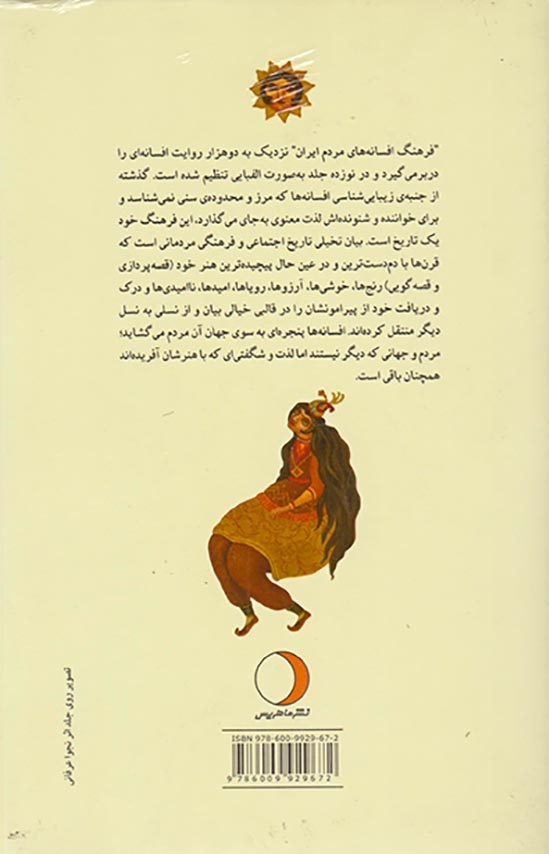 "فرهنگ افسانه‌های مردم ایران" نزدیک به دوهزار روایت افسانه‌ای را
دربرمی‌گیرد و در نوزده جلد به‌صورت الفبایی تنظیم شده است. گذشته
از جنبه‌ی زیبایی‌شناسی افسانه‌ها که مرز و محدوده‌ی سنی نمی‌شناسد و
برای خواننده و شنونده‌اش لذت معنوی به‌جای می‌گذارد، این فرهنگ خود
یک تاریخ است. بیان تخیلی تاریخ اجتماعی و فرهنگی مردمانی است که
قرن‌ها با دم‌دست‌ترین و در عین حال پیچیده‌ترین هنر خود (قصه‌پردازی
و قصه‌گویی) رنج‌ها، خوشی‌ها، آرزوها، رویاها، امیدها، ناامیدی‌ها و درک
و دریافت خود از پیرامونشان را در قالبی خیالی بیان و از نسلی به نسل
دیگر منتقل کرده‌اند. افسانه‌ها پنجره‌ای به سوی جهان آن مردم می‌گشاید؛
مردم و جهانی که دیگر نیستند اما لذت و شگفتی‌ای که با هنرشان آفریده‌اند
همچنان باقی است.
نشر ماهریس
ISBN 978-600-9929-67-2
9 786009 929672
تصویر روی جلد اثر نجوا عرفانی